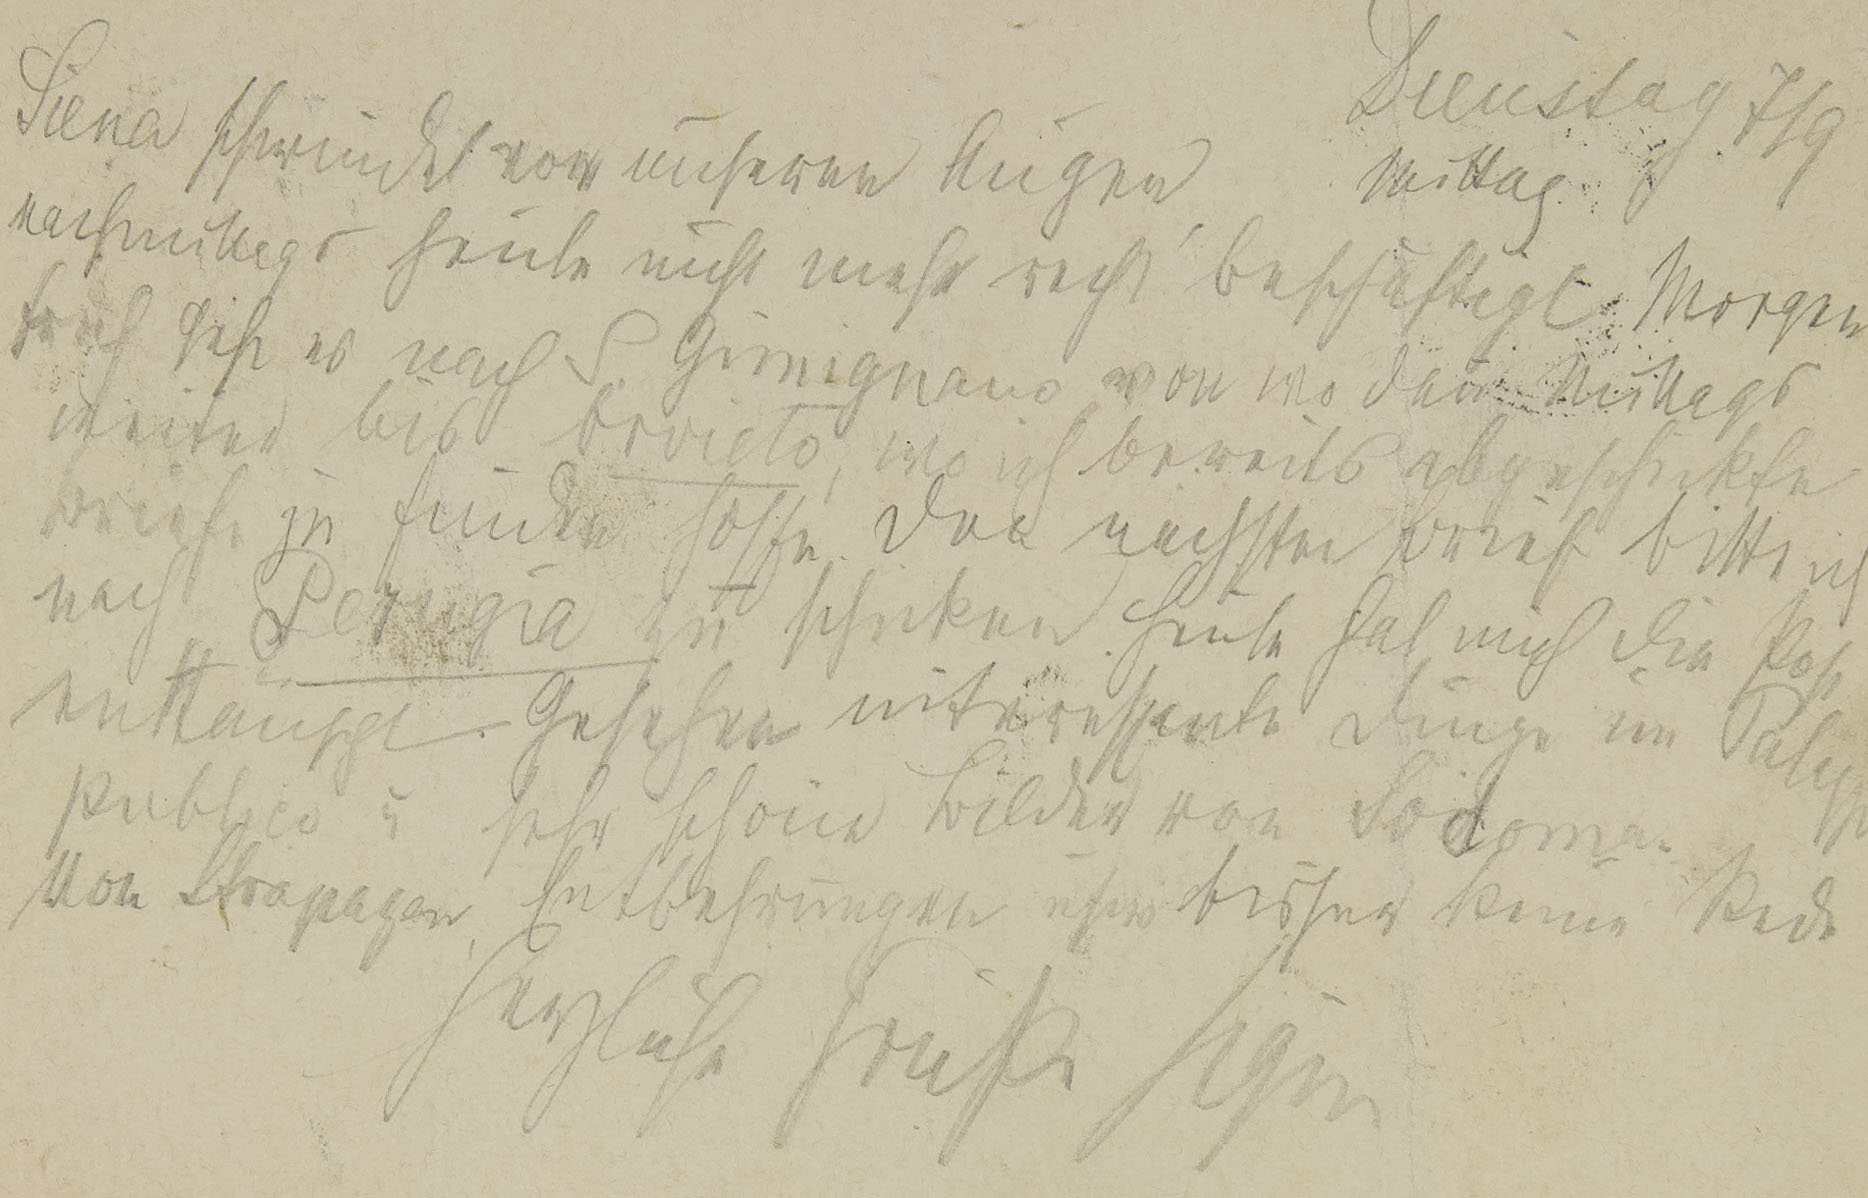 Dienstag 7/9
Mittag
Siena schwindet vor unseren Augen
nachmittags heute nicht mehr recht beschäftigt. Morgen
früh geht es nach S. Gimignano von wo dann Mittags
weiter bis Orvieto, wo ich bereits abgeschickte
Briefe zu finden hoffe. Den nächsten Brief bitte ich
nach Perugia zu schicken. Heute hat mich die Post
enttäuscht. Gesehen interessante Dinge im Palazzo
publico u sehr schöne Bilder von Sodoma.
Von Strapazen, Entbehrungen usw bisher keine Rede
Herzliche Grüße